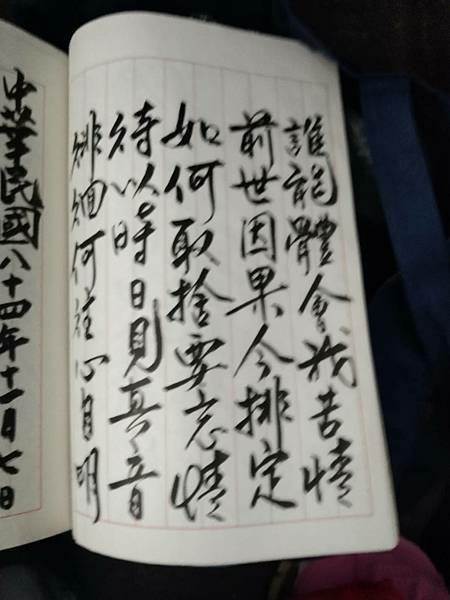 誰能體會我苦情
前世因果今排定
如何取捨要忘情
待以時日見真音
徘徊何往心自明
中華民國八十四年十一月七日